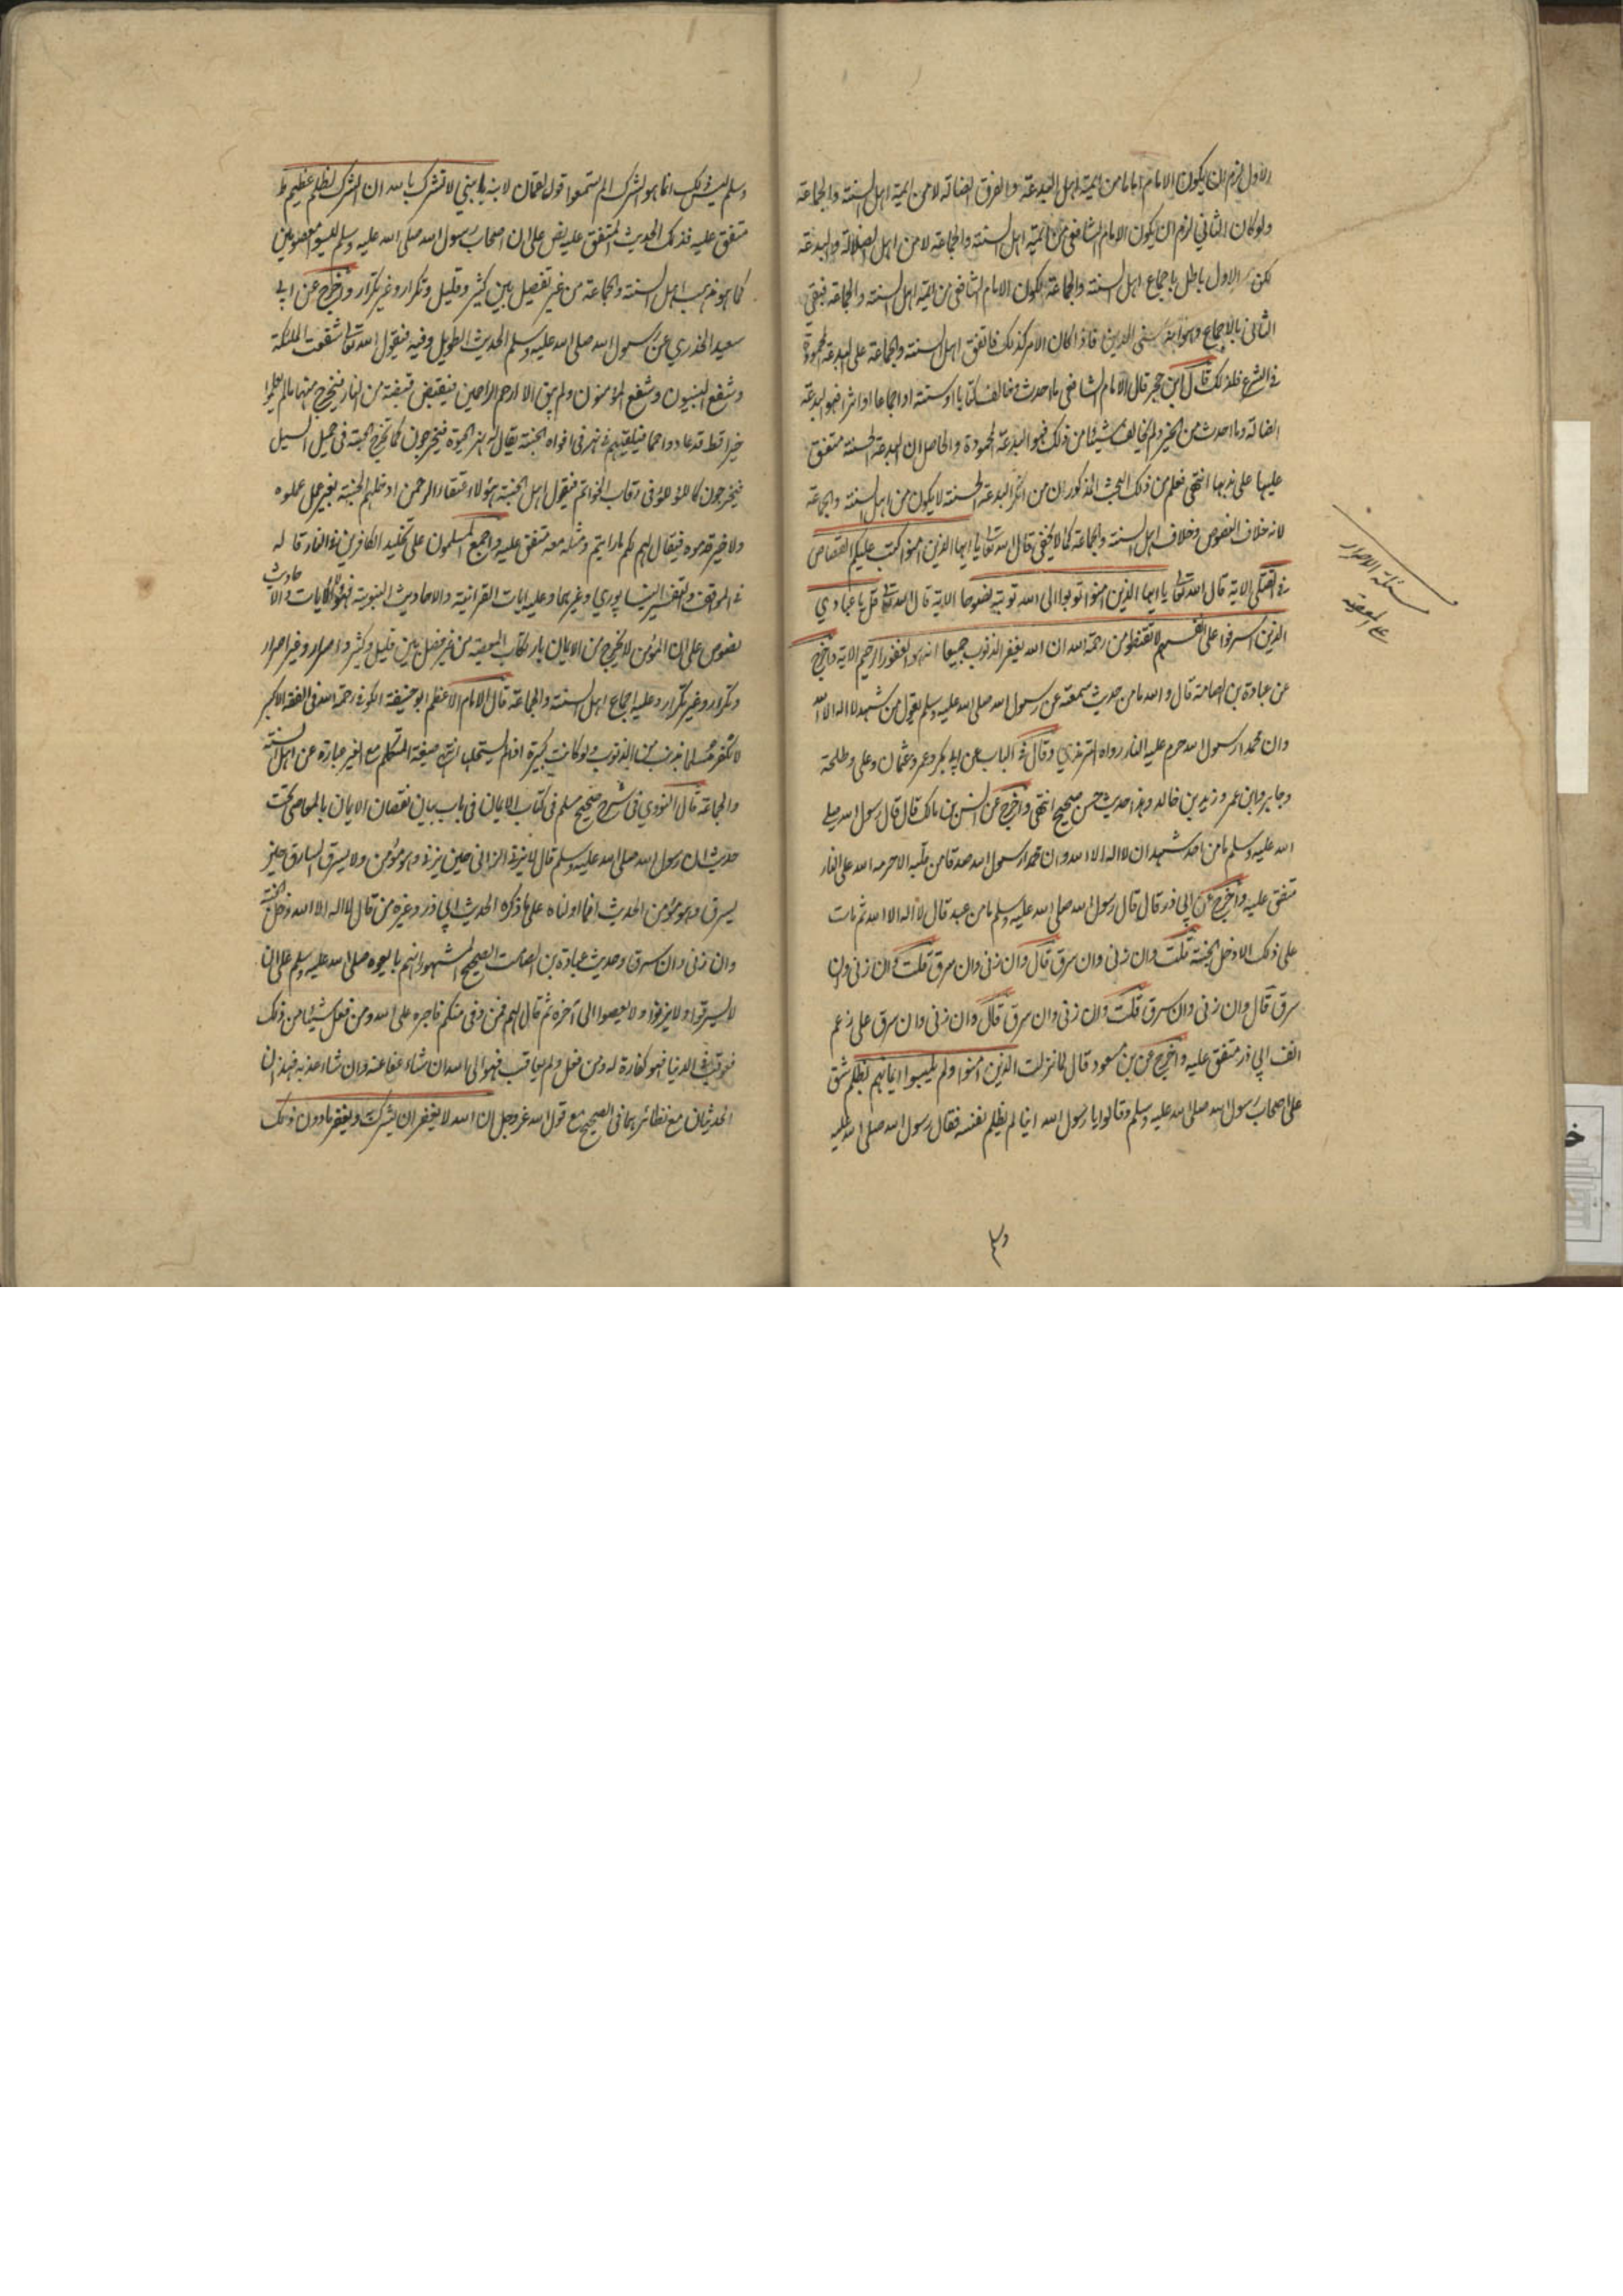 الاول لزم ان يكون الامام اماما من ائمة اهل البدعة والفرق الضالة لا من ائمة اهل السنة والجماعة
ولو كان الثاني لزم ان يكون الامام الشافعي من ائمة اهل السنة والجماعة لا من اهل الضلالة والبدعة
لكن الاول باطل باجماع اهل السنة والجماعة لكون الامام الشافعي من ائمة اهل السنة والجماعة فبقي
الثاني بالاجماع وهوا فاذا كان الامر كذلك فاتفق اهل السنة والجماعة على البدعة المحمودة
في الشرع فلذلك قال ابن حجر قال الامام الشافعي ما احدث وخالف كتابا او سنة او اجماعا او اثرا فهو البدعة
الضالة وما احدث من الخير ولم يخالف شيئا من ذلك فهو البدعة المحمودة والحاصل ان البدعة الحسنة متفق
عليها على ندبها انتهى فعلم من ذلك البحث المذكور ان من انكر البدعة الحسنة لا يكون من اهل السنة والجماعة
لانه خلاف النصوص وخلاف اهل السنة والجماعة كما لا يخفى قال الله تعالى يا ايها الذين امنوا كتب عليكم القصاص
في القتلى الاية قال الله تعالى يا ايها الذين امنوا توبوا الى الله توبة نصوحا الاية قال الله تعالى قل يا عبادي
الذين اسرفوا على انفسهم لا تقنطوا من رحمة الله ان الله يغفر الذنوب جميعا انه هو الغفور الرحيم الاية واخرج
عن عبادة بن الصامت قال والله ما من حديث سمعته عن رسول الله صلى الله عليه وسلم يقول من شهد لا اله الا الله
وان محمدا رسول الله حرم عليه النار رواه الترمذي وقال في الباب عن ابي بكر وعمر وعثمان وعلي وطلحة
وجابر وابن عمر وزيد بن خالد وهذا حديث حسن صحيح انتهى واخرج عن انس بن مالك قال قال رسول الله صلى
الله عليه وسلم ما من احد شهد ان لا اله الا الله وان محمدا رسول الله صدقا من قلبه الا حرمه الله على النار
متفق عليه واخرج عن ابي ذر قال قال رسول الله صلى الله عليه وسلم ما من عبد قال لا اله الا الله ثم مات
على ذلك الا دخل الجنة قلت وان زنى وان سرق قال وان زنى وان سرق قلت وان زنى وان
سرق قال وان زنى وان سرق قلت وان زنى وان سرق قال وان زنى وان سرق على رغم
انف ابي ذر متفق عليه واخرج عن بن مسعود قال لما نزلت الذين امنوا ولم يلبسوا ايمانهم بظلم شق
على اصحاب رسول الله صلى الله عليه وسلم وقالوا يا رسول الله اينا لم يظلم نفسه فقال رسول الله صلى الله عليه
مسئلة الاصرار
على المعصية
وسلم
وسلم ليس ذلك انما هو الشرك الم تستمعوا قول لقمان لابنه يا بني لا تشرك بالله ان الشرك لظلم عظيم ط
متفق عليه فذلك الحديث المتفق عليه نص على ان اصحاب رسول الله صلى الله عليه وسلم ليسو معصومين
كما هو مذهب اهل السنة والجماعة من غير تفصيل بين كثير وقليل وتكرار وغير تكرار واخرج عن ابي
سعيد الخدري عن رسول الله صلى الله عليه وسلم الحديث الطويل وفيه فيقول الله تعالى شفعت الملئكة
وشفع النبيون وشفع المؤمنون ولم يبق الا ارحم الراحمين فيقبض قبضة من النار فيخرج منها ما لم يعملوا
خيرا قط قد عادوا حمما فيلقيهم في نهر في افواه الجنة يقال له نهر الحيوة فيخرجون كما تخرج الحبة في حميل السيل
فيخرجون كاللؤلؤ في رقاب الخواتم فيقول اهل الجنة هؤلاء عتقاء الرحمن ادخلهم الجنة بغير عمل عملوه
ولا خير قدموه فيقال لهم لكم ما رايتم ومثله معه متفق عليه واجمع المسلمون على تخليد الكافرين في النار قاله
في المواقف والتفسير النيسابوري وغيرهما وعليه ايات القرانية والاحاديث النبوية فهؤلاء الايات والاحاديث
نصوص على ان المؤمن لا يخرج من الايمان بارتكاب المعصية من غير فصل بين قليل وكثير واصرار وغير اصرار
وتكرار وغير تكرار وعليه اجماع اهل السنة والجماعة قال الامام الاعظم ابو حنيفة الكوفي رحمة الله في الفقه الاكبر
لا نكفر مسلما بذنب من الذنوب ولو كانت كبيرة اذا لم يستحلها انتهى صيغة المتكلم مع الغير عبارة عن اهل السنة
والجماعة قال النووي في شرح صحيح مسلم في كتاب الايمان في باب بيان نقصان الايمان بالمعاصي تحت
حديث ان رسول الله صلى الله عليه وسلم قال لا يزني الزاني حين يزني وهو مؤمن ولا يسرق السارق حين
يسرق وهو مؤمن الحديث انما اولناه على ما ذكره الحديث ابي ذر وغيره من قال لا اله الا الله دخل الجنة
وان زنى وان سرق وحديث عبادة بن الصامت الصحيح المشهور انهم بايعوه صلى الله عليه وسلم على ان
لا يسرقوا ولا يزنوا ولا يعصوا الى آخره ثم قال لهم فمن وفى منكم فاجره على الله ومن فعل شيئا من ذلك
فعوقب في الدنيا فهو كفارة له ومن فعل ولم يعاقب فهو الى الله ان شاء عفا عنه وان شاء عذبه فهذان
الحديثان مع نظائرهما في الصحيح مع قول الله عز وجل ان الله لا يغفر ان يشرك به ويغفر ما دون ذلك